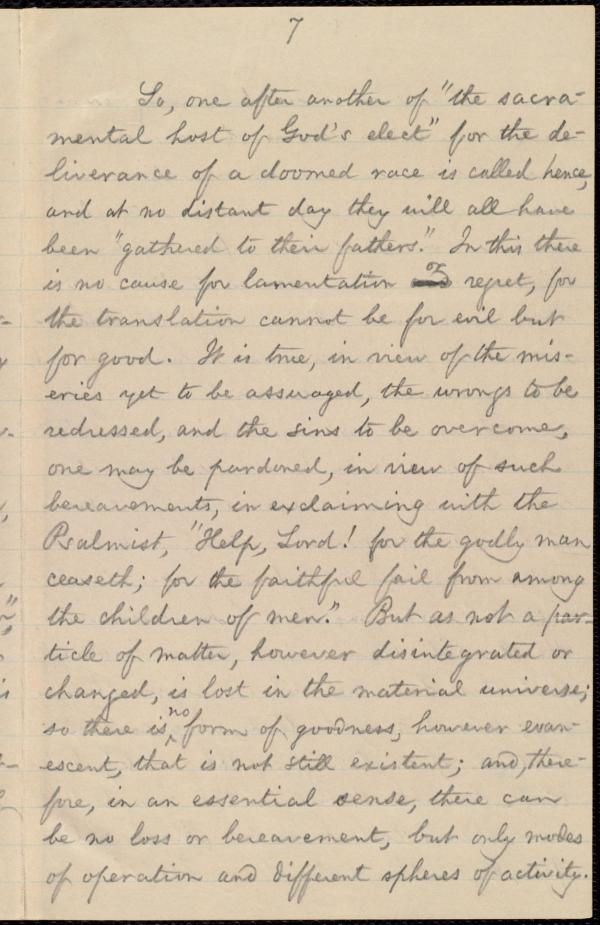 7
So, one after another of "the sacra-
mental host of God's elect" for the de-
liverance of a doomed race is called hence,
and at no distant day they will all have
been "gathered to their fathers." In this there
is no cause for lamentation or regret, for
the translation cannot be for evil but
for good. It is true, in view of the mis-
eries yet to be assuaged, the wrongs to be
redressed, and the sins to be overcome,
one may be pardoned, in view of such
bereavements, in exclaiming with the
Psalmist, "Help, Lord! for the godly man
ceaseth; for the faithful fail from among
the children of men." But as not a par-
ticle of matter, however disintegrated or
changed, is lost in the material universe;
so there is no form of goodness, however evan-
escent, that is not still existent; and, there-
fore, in an essential sense, there can
be no loss or bereavement, but only modes
of operation and different spheres of activity.